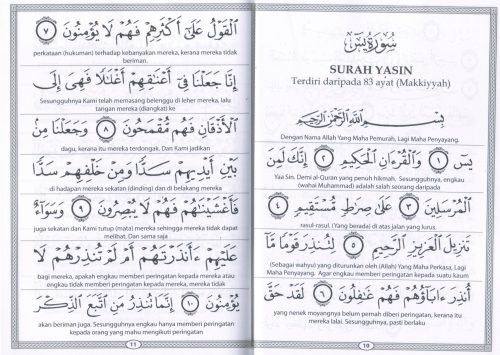 سُورَةُ يسٓ
SURAH YASIN
Terdiri daripada 83 ayat (Makkiyyah)
بِسْمِ ٱللَّهِ ٱلرَّحْمَٰنِ ٱلرَّحِيمِ
Dengan Nama Allah Yang Maha Pemurah, Lagi Maha Penyayang.
يسٓ ١ وَٱلْقُرْءَانِ ٱلْحَكِيمِ ٢ إِنَّكَ لَمِنَ
Yaa Sin. Demi al-Quran yang penuh hikmah. Sesungguhnya, engkau
(wahai Muhammad) adalah salah seorang daripada
ٱلْمُرْسَلِينَ ٣ عَلَىٰ صِرَٰطٍ مُّسْتَقِيمٍ ٤
rasul-rasul. (Yang berada) di atas jalan yang lurus.
تَنزِيلَ ٱلْعَزِيزِ ٱلرَّحِيمِ ٥ لِتُنذِرَ قَوْمًا مَّآ
(Sebagai wahyu) yang diturunkan oleh (Allah) Yang Maha Perkasa, Lagi
Maha Penyayang. Agar engkau memberi peringatan kepada suatu kaum
أُنذِرَ ءَابَآؤُهُمْ فَهُمْ غَٰفِلُونَ ٦ لَقَدْ حَقَّ
yang nenek moyangnya belum pernah diberi peringatan, kerana itu
mereka lalai. Sesungguhnya, pasti berlaku
10
ٱلْقَوْلُ عَلَىٰٓ أَكْثَرِهِمْ فَهُمْ لَا يُؤْمِنُونَ ٧
perkataan (hukuman) terhadap kebanyakan mereka, kerana mereka tidak
beriman.
إِنَّا جَعَلْنَا فِىٓ أَعْنَٰقِهِمْ أَغْلَٰلًا فَهِىَ إِلَى
Sesungguhnya Kami telah memasang belenggu di leher mereka, lalu
tangan mereka (diangkat) ke
ٱلْأَذْقَانِ فَهُم مُّقْمَحُونَ ٨ وَجَعَلْنَا مِنۢ
dagu, kerana itu mereka tertengadah. Dan Kami jadikan
بَيْنِ أَيْدِيهِمْ سَدًّا وَمِنْ خَلْفِهِمْ سَدًّا
di hadapan mereka sekatan (dinding) dan di belakang mereka
فَأَغْشَيْنَٰهُمْ فَهُمْ لَا يُبْصِرُونَ ٩ وَسَوَآءٌ
juga sekatan dan Kami tutup (mata) mereka sehingga mereka tidak dapat
melihat. Dan sama saja
عَلَيْهِمْ ءَأَنذَرْتَهُمْ أَمْ لَمْ تُنذِرْهُمْ لَا
bagi mereka, apakah engkau memberi peringatan kepada mereka atau
engkau tidak memberi peringatan kepada mereka, mereka tidak
يُؤْمِنُونَ ١٠ إِنَّمَا تُنذِرُ مَنِ ٱتَّبَعَ ٱلذِّكْرَ
akan beriman juga. Sesungguhnya engkau hanya memberi peringatan
kepada orang yang mahu mengikuti peringatan
11